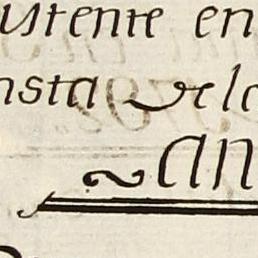 ustente en
nsta de le
an